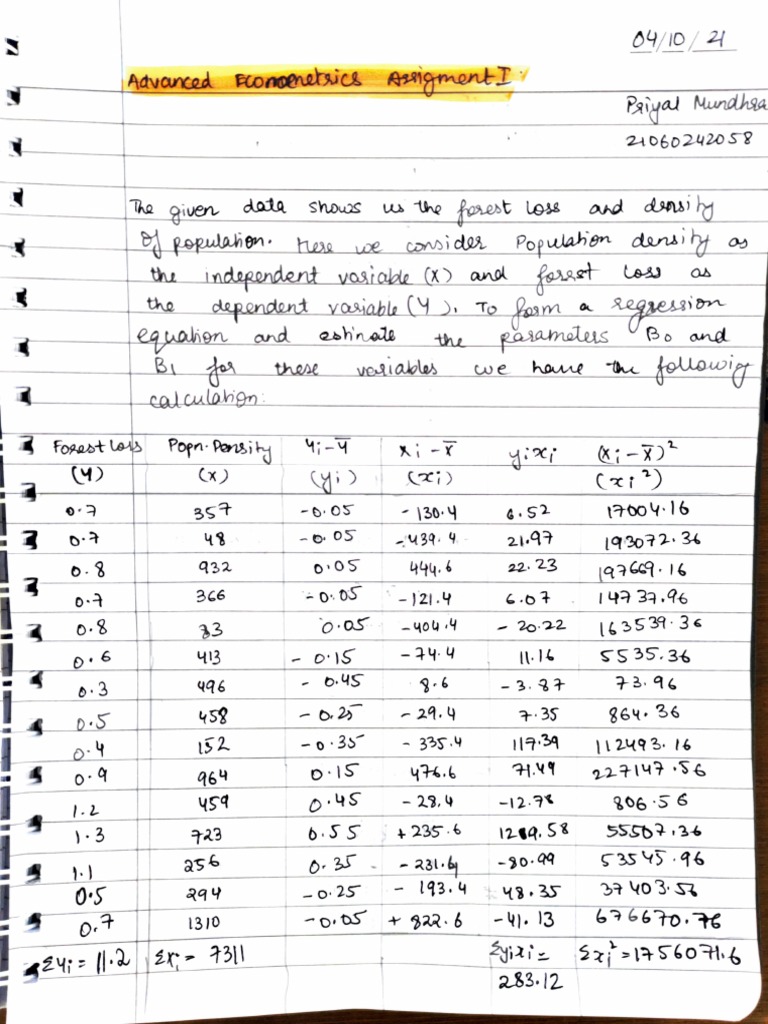 04/10/21
Advanced Econometrics Assigment I:
Priyal Mundhra
21060242058
The given data shows us the forest loss and density
of population. Here we consider Population density as
the independent variable (X) and forest loss as
the dependent variable (Y). To form a regression
equation and estinate the parameters B0 and
B1 for these variables we have the following
calculation:
Forest Loss Popn. Density Yi-Ȳ Xi-X̄ yixi (Xi-X̄)²
(Y) (X) (yi) (xi) (xi²)
0.7 357 -0.05 -130.4 6.52 17004.16
0.7 48 -0.05 -439.4 21.97 193072.36
0.8 932 0.05 444.6 22.23 197669.16
0.7 366 -0.05 -121.4 6.07 14737.96
0.8 83 0.05 -404.4 -20.22 163539.36
0.6 413 -0.15 -74.4 11.16 5535.36
0.3 496 -0.45 8.6 -3.87 73.96
0.5 458 -0.25 -29.4 7.35 864.36
0.4 152 -0.35 -335.4 117.39 112493.16
0.9 964 0.15 476.6 71.49 227147.56
1.2 459 0.45 -28.4 -12.78 806.56
1.3 723 0.55 +235.6 129.58 55507.36
1.1 256 0.35 -231.4 -80.99 53545.96
0.5 294 -0.25 -193.4 48.35 37403.56
0.7 1310 -0.05 +822.6 -41.13 676670.76
ΣYi = 11.2 ΣXi = 7311 Σyixi = Σxi² = 1756071.6
283.12